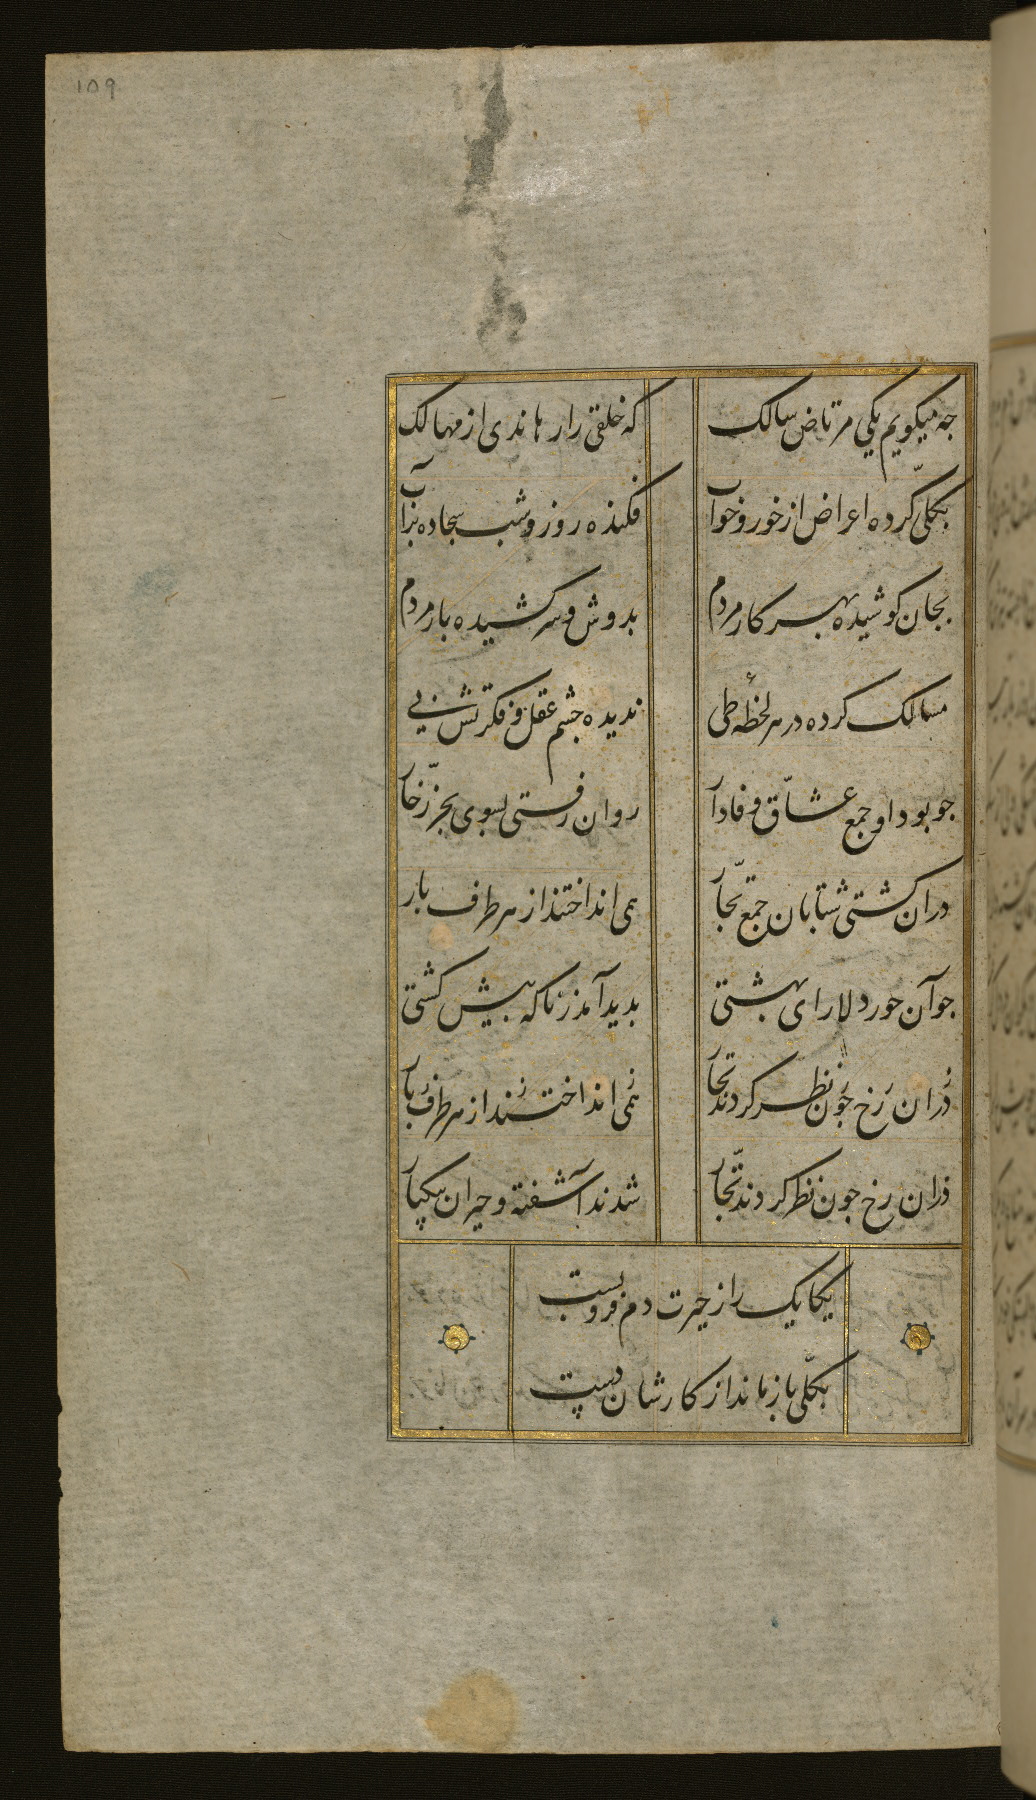 ۱۵۹
جه میکویم یکی مرتاض سالک که خلقی را رهاندی از مهالک
بکلّی کرده اعراض از خور و خواب فکنده روز و شب سجاده بر آب
بجان کوشیده بهر کار مردم بدوش و سر کشیده بار مردم
مسالک کرده در هر لحظهٔ طی ندیده جشم عقل و فکرتش پی
جو بود او جمع عشّاق وفادار روان رفتی بسوی بحر زخّار
دران کشتی شتابان جمع تجّار همی انداختند از هر طرف بار
جو آن حور دلارای بهشتی بدید آمد ز ناکه پیش کشتی
دران رخ جون نظر کردند تجار نمی انداختند از هر طرف بار
دران رخ جون نظر کردند تجّار شدند آشفته و حیران بیکبار
یکایک را ز حیرت دم فرو بست
بکلّی باز ماند از کارشان دست